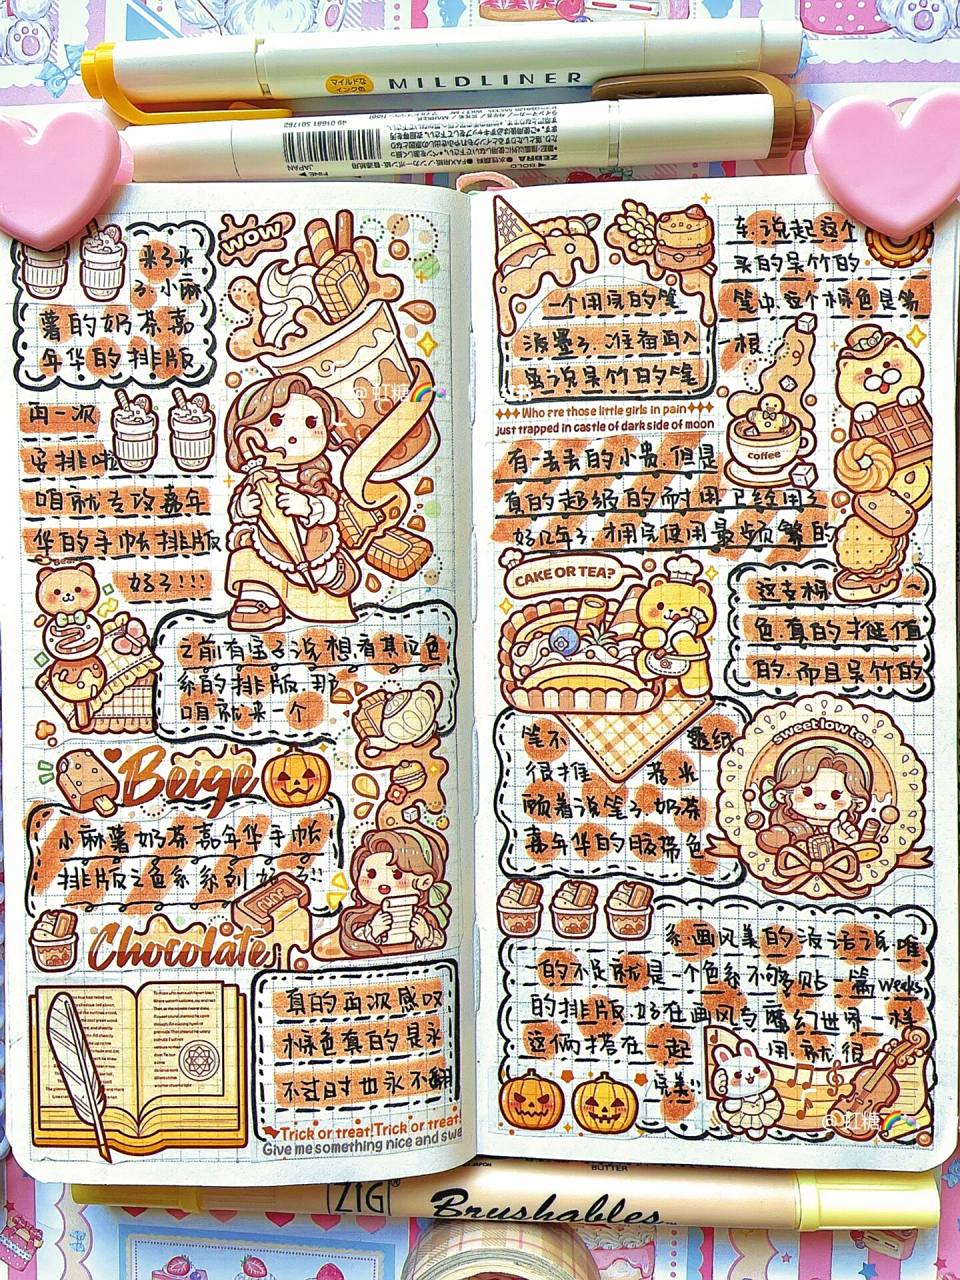 マイルドな
インク色
MILDLINER
4901681 501762
JAPAN
ZEBRA
来了来
了.小麻
薯的奶茶嘉
年华的排版
WOW
再一次
安排啦
咱就专攻嘉年
华的手帐排版
好了!!!
Bear
之前有宝子说想看其它色
系的排版.那
咱就来一个
Beige
小麻薯奶茶嘉年华手帐
排版之色系系列好了!!
Chocolate
真的再次感叹
棕色真的是永
不过时也永不翻
Trick or treat!Trick or treat!
Give me something nice and swe
一个用完的笔
准备再入
虽说吴竹的笔
Who are those little girls in pain
just trapped in castle of dark side of moon
有一丢丢的小贵.但是
真的超级的耐用.已经用了
好几年了.才用完使用最频繁的
车.说起这个
买的吴竹的
笔中.这个棕色是第
一根
coffee
CAKE OR TEA?
这支棕
色.真的才值
的.而且吴竹的
笔不
很推
顺着说笔了.奶茶
嘉年华的胶带色
sweet low tea
系.画风美的没话说.唯
一的不足就是一个色系不够多贴一篇weeks
的排版.好在画风与魔幻世界一样
这俩搭在一起
用就很
完美!!
@虹糖🌈
@虹糖🌈
BUTTER
ZIG®
Brushables